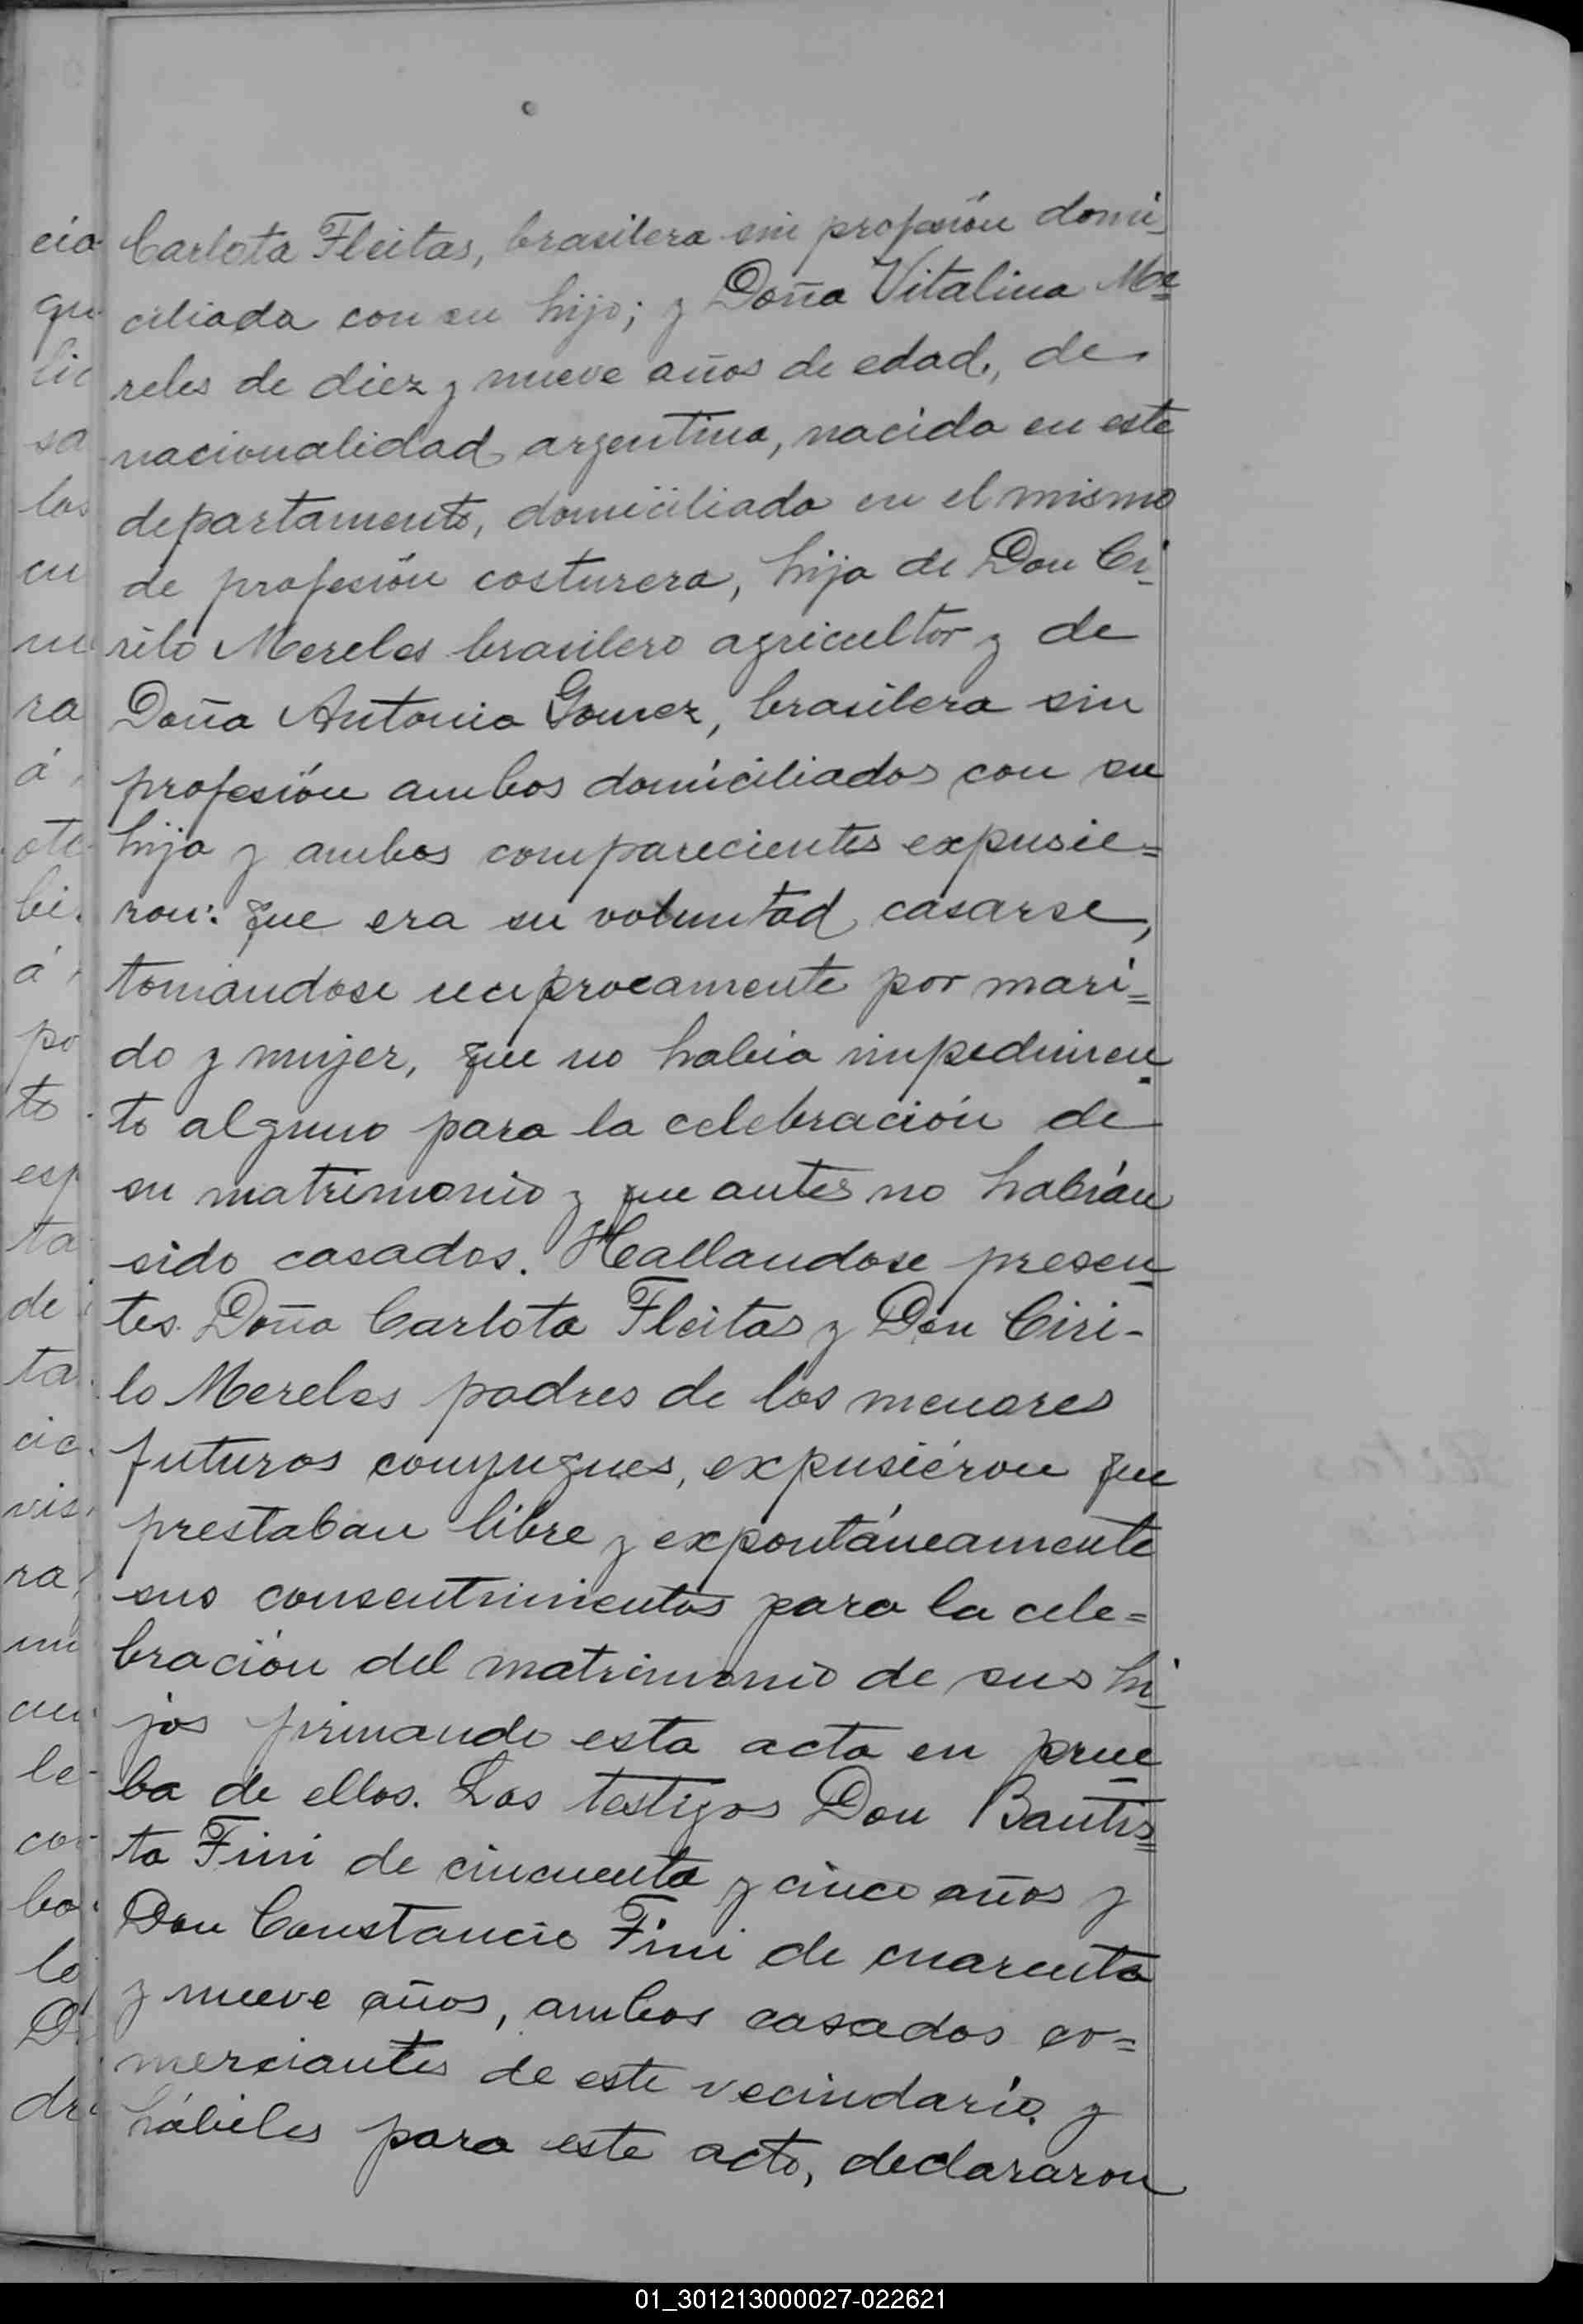 Carlota Fleitas, brasilera sin profesión domi_
ciliada con su hijo; y Doña Vitalina Me=
reles de diez y nueve años de edad, de
nacionalidad argentina, nacida en este
departamento, domiciliada en el mismo
de profesión costurera, hija de Don Ci_
rilo Mereles brasilero agricultor y de
Doña Antonia Gomez, brasilera sin
profesión ambos domiciliados con su
hija y ambos comparecientes expusie=
ron: que era su voluntad casarse,
tomandose reciprocamente por mari=
do y mujer, que no habia impedimen_
to alguno para la celebración de
su matrimonio y que antes no habían
sido casados. Hallandose presen_
tes Doña Carlota Fleitas y Don Ciri-
lo Mereles padres de los menores
futuros conyugues, expusiéron que
prestaban libre y expontáneamente
sus consentimientos para la cele=
bración del matrimonio de sus hi_
jos firmando esta acta en prue_
ba de ellos. Los testigos Don Bautis=
ta Fini de cincuenta y cinco años y
Don Constancio Fini de cuarenta
y nueve años, ambos casados co=
merciantes de este vecindario y
hábiles para este acto, declararon
cia
qu
lic
sa
los
cu
ra
á
bi
á
po
to
esp
ta
de
ta
cia
vis
ra
le
co
bo
lo
D
dr
01_301213000027-022621